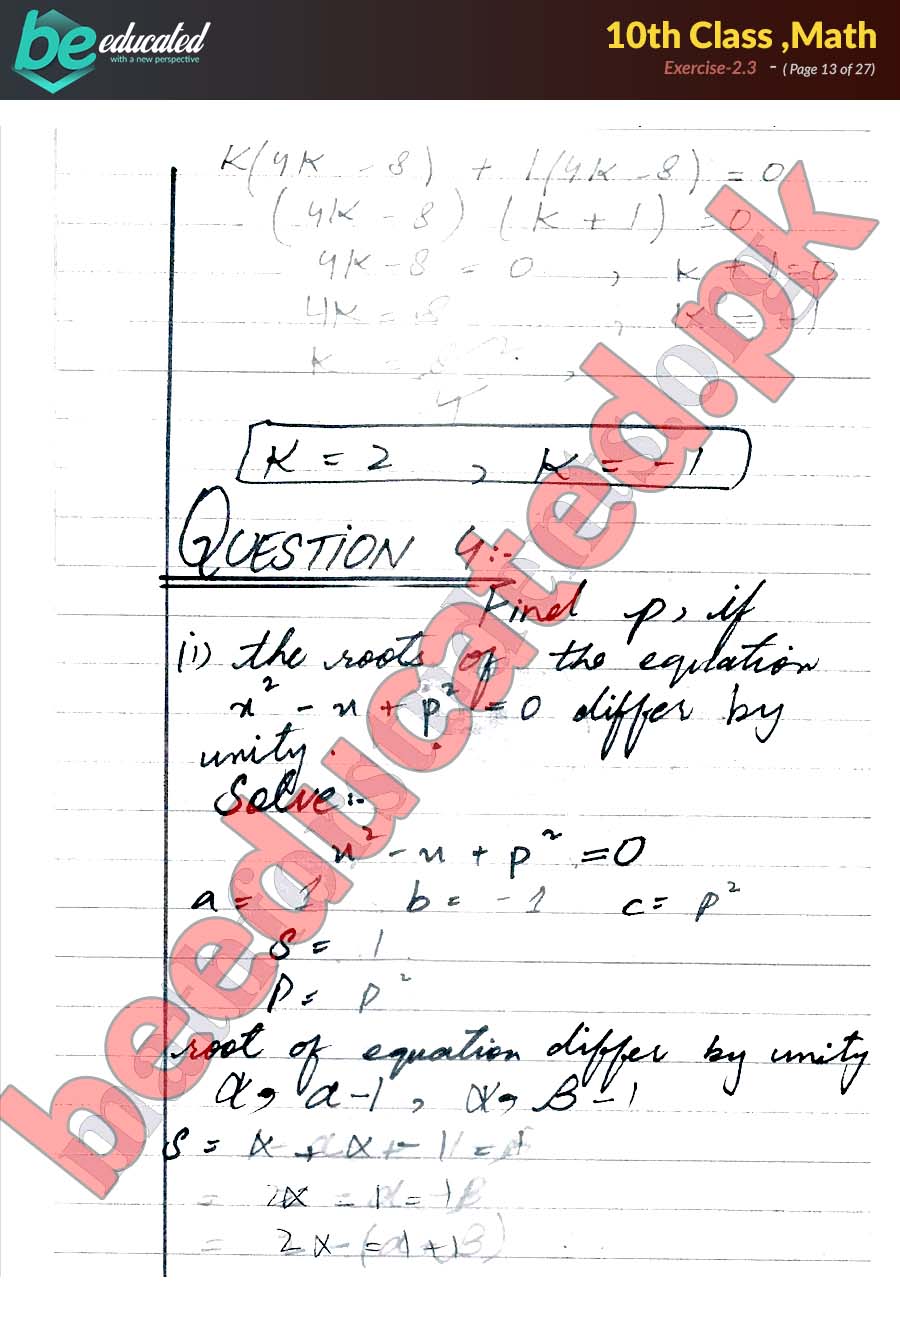 be educated
with a new perspective
10th Class ,Math
Exercise-2.3 - ( Page 13 of 27)
K(4K - 8) + 1(4K - 8) = 0
(4K - 8) (K + 1) = 0
4K - 8 = 0 , K + 1 = 0
4K = 8 , K = -1
K = 8 ,
4
K = 2 , K = -1
QUESTION 4:-
Find p, if
(i) the roots of the equation
x² - x + p² = 0 differ by
unity.
Solve:-
x² - x + p² = 0
a = 1 b = -1 c = p²
S = 1
P = p²
root of equation differ by unity
α, α-1, α, β-1
S =
=
=
beeducated.pk